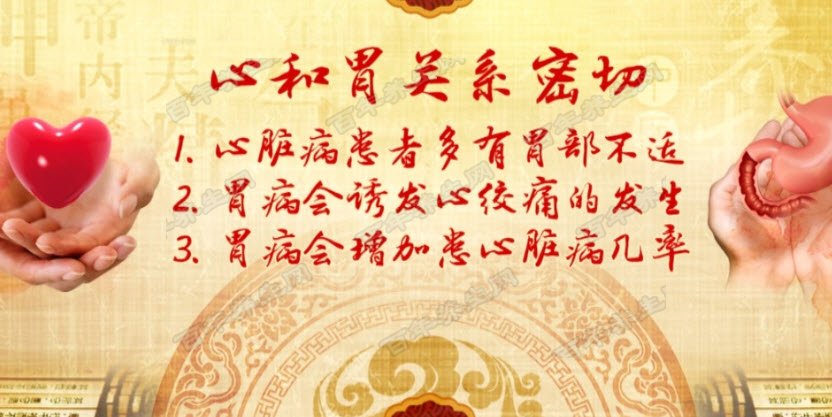 心和胃关系密切
1. 心脏病患者多有胃部不适
2. 胃病会诱发心绞痛的发生
3. 胃病会增加患心脏病几率
百年养生网
帝内经